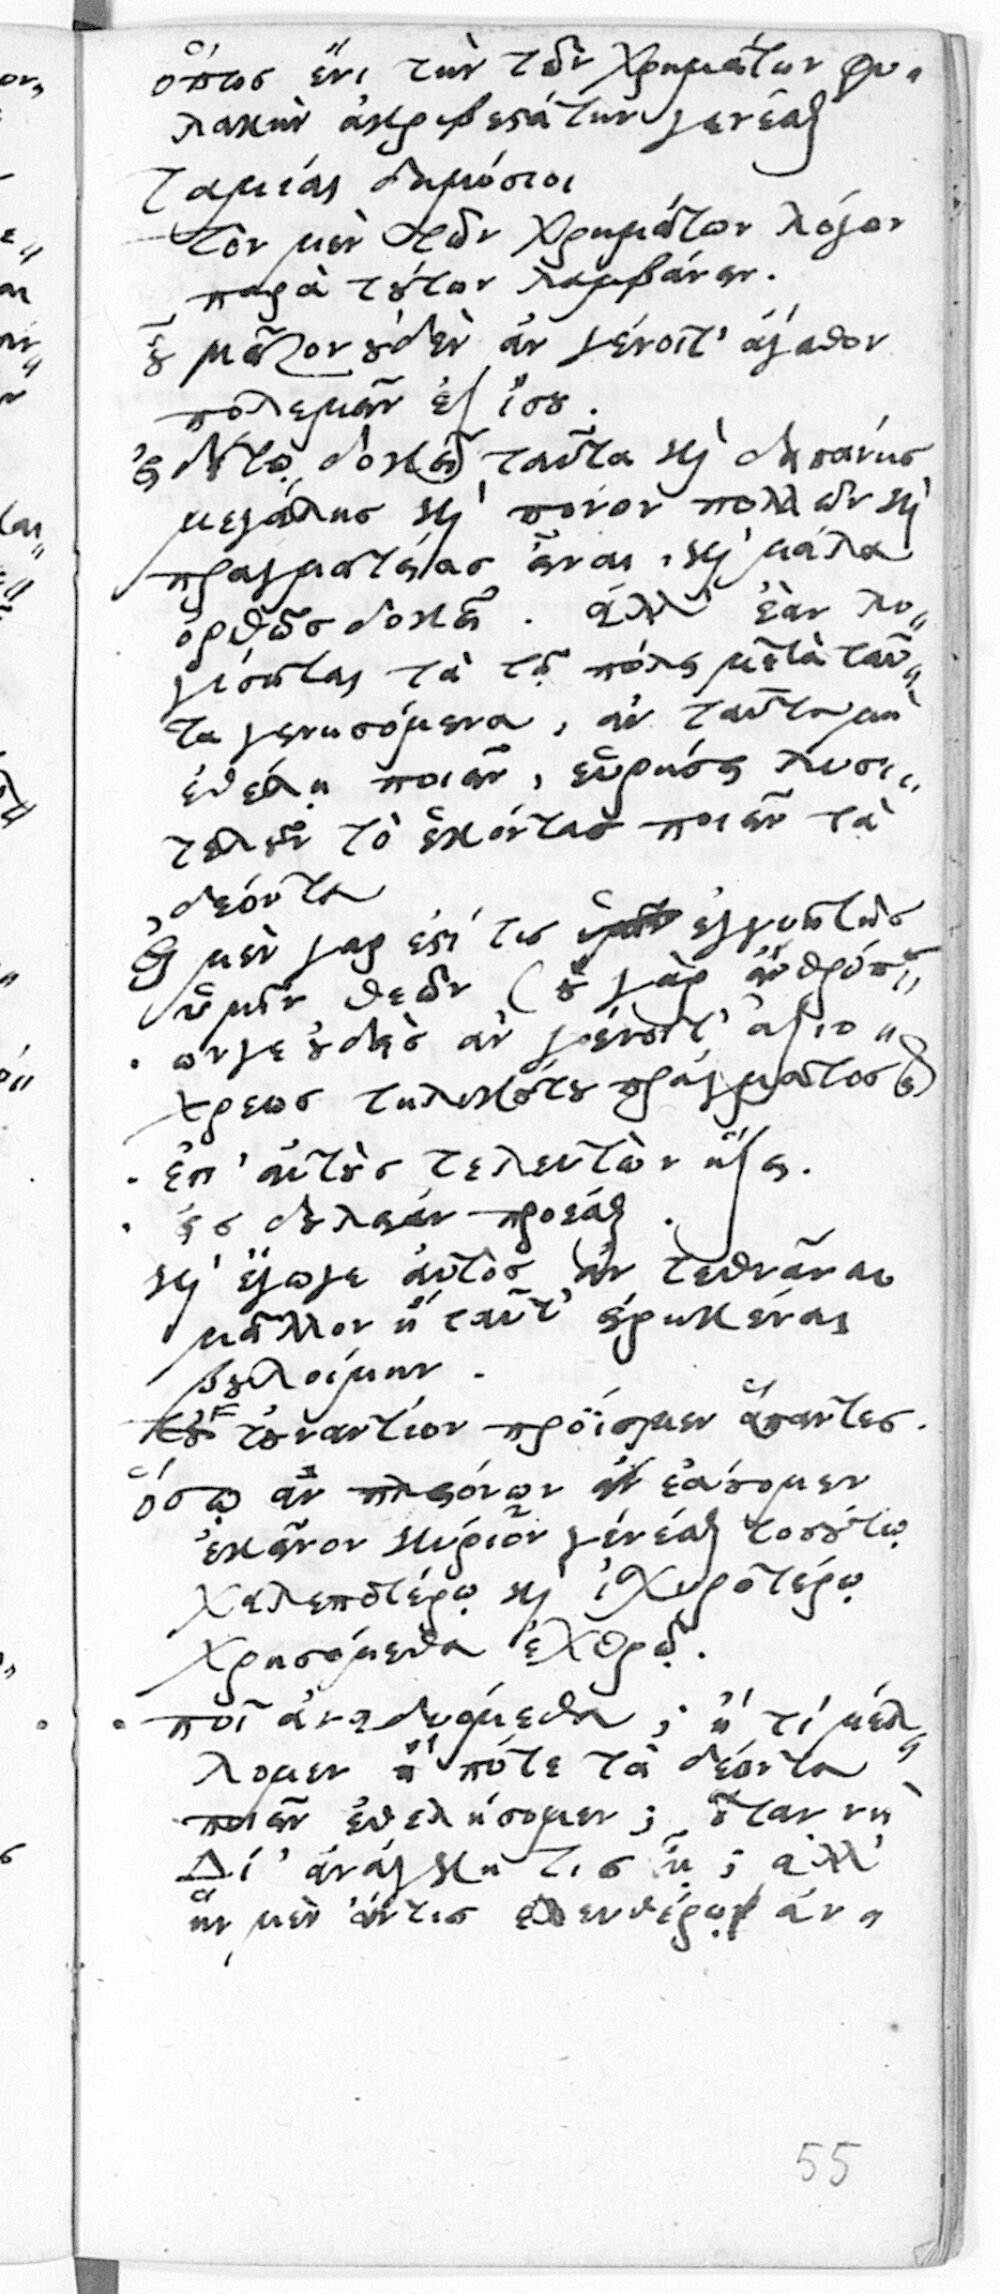 ὅπως ἔνι τὴν τῶν χρημάτων φυ„
λακὴν ἀκριβεστάτην γενέσθαι
ταμίαι δημόσιοι
τὸν μὲν τῶν χρημάτων λόγον
παρὰ τούτων λαμβάνειν.
οὗ μεῖζον οὐδὲν ἂν γένοιτ' ἀγαθὸν
πολεμεῖν ἐξ ἴσου.
εἰ δέ τῳ δοκεῖ ταῦτα καὶ δαπάνης
μεγάλης καὶ πόνων πολλῶν καὶ
πραγματείας εἶναι, καὶ μάλα
ὀρθῶς δοκεῖ. ἀλλ' ἐὰν λο„
γίσηται τὰ τῇ πόλει μετὰ ταῦ„
τα γενησόμενα, ἂν ταῦτα μὴ
ἐθέλῃ ποιεῖν, εὑρήσει λυσι„
τελοῦν τὸ ἑκόντας ποιεῖν τὰ
δέοντα
εἰ μὲν γάρ ἐστί τις ἐγγυητὴς
ὑμῖν θεῶν (οὐ γὰρ ἀνθρώπ„
ων γε οὐδεὶς ἂν γένοιτ' ἀξιο„
χρεως τηλικούτου πράγματος)
ἐπ' αὐτοὺς τελευτῶν ἥξει.
εἰς δουλείαν προέσθαι.
καὶ ἔγωγε αὐτὸς ἂν τεθνάναι
μᾶλλον ἢ ταῦτ' εἰρηκέναι
βουλοίμην.
τοὐναντίον πρόϊσμεν ἅπαντες.
ὅσῳ ἂν πλειόνων ἐάσομεν
ἐκεῖνον κύριον γενέσθαι τοσούτῳ
χαλεπωτέρῳ καὶ ἰσχυροτέρῳ
χρησόμεθα ἐχθρῷ.
ποῖ ἀναδυόμεθα; ἢ τί μέλ„
λομεν ἢ πότε τὰ δέοντα
ποιεῖν ἐθελήσομεν; ὅταν νὴ
Δί' ἀνάγκη τις ᾖ; ἀλλ'
ἣν μὲν ἄν τις ἐλευθέρων ἀν„
55